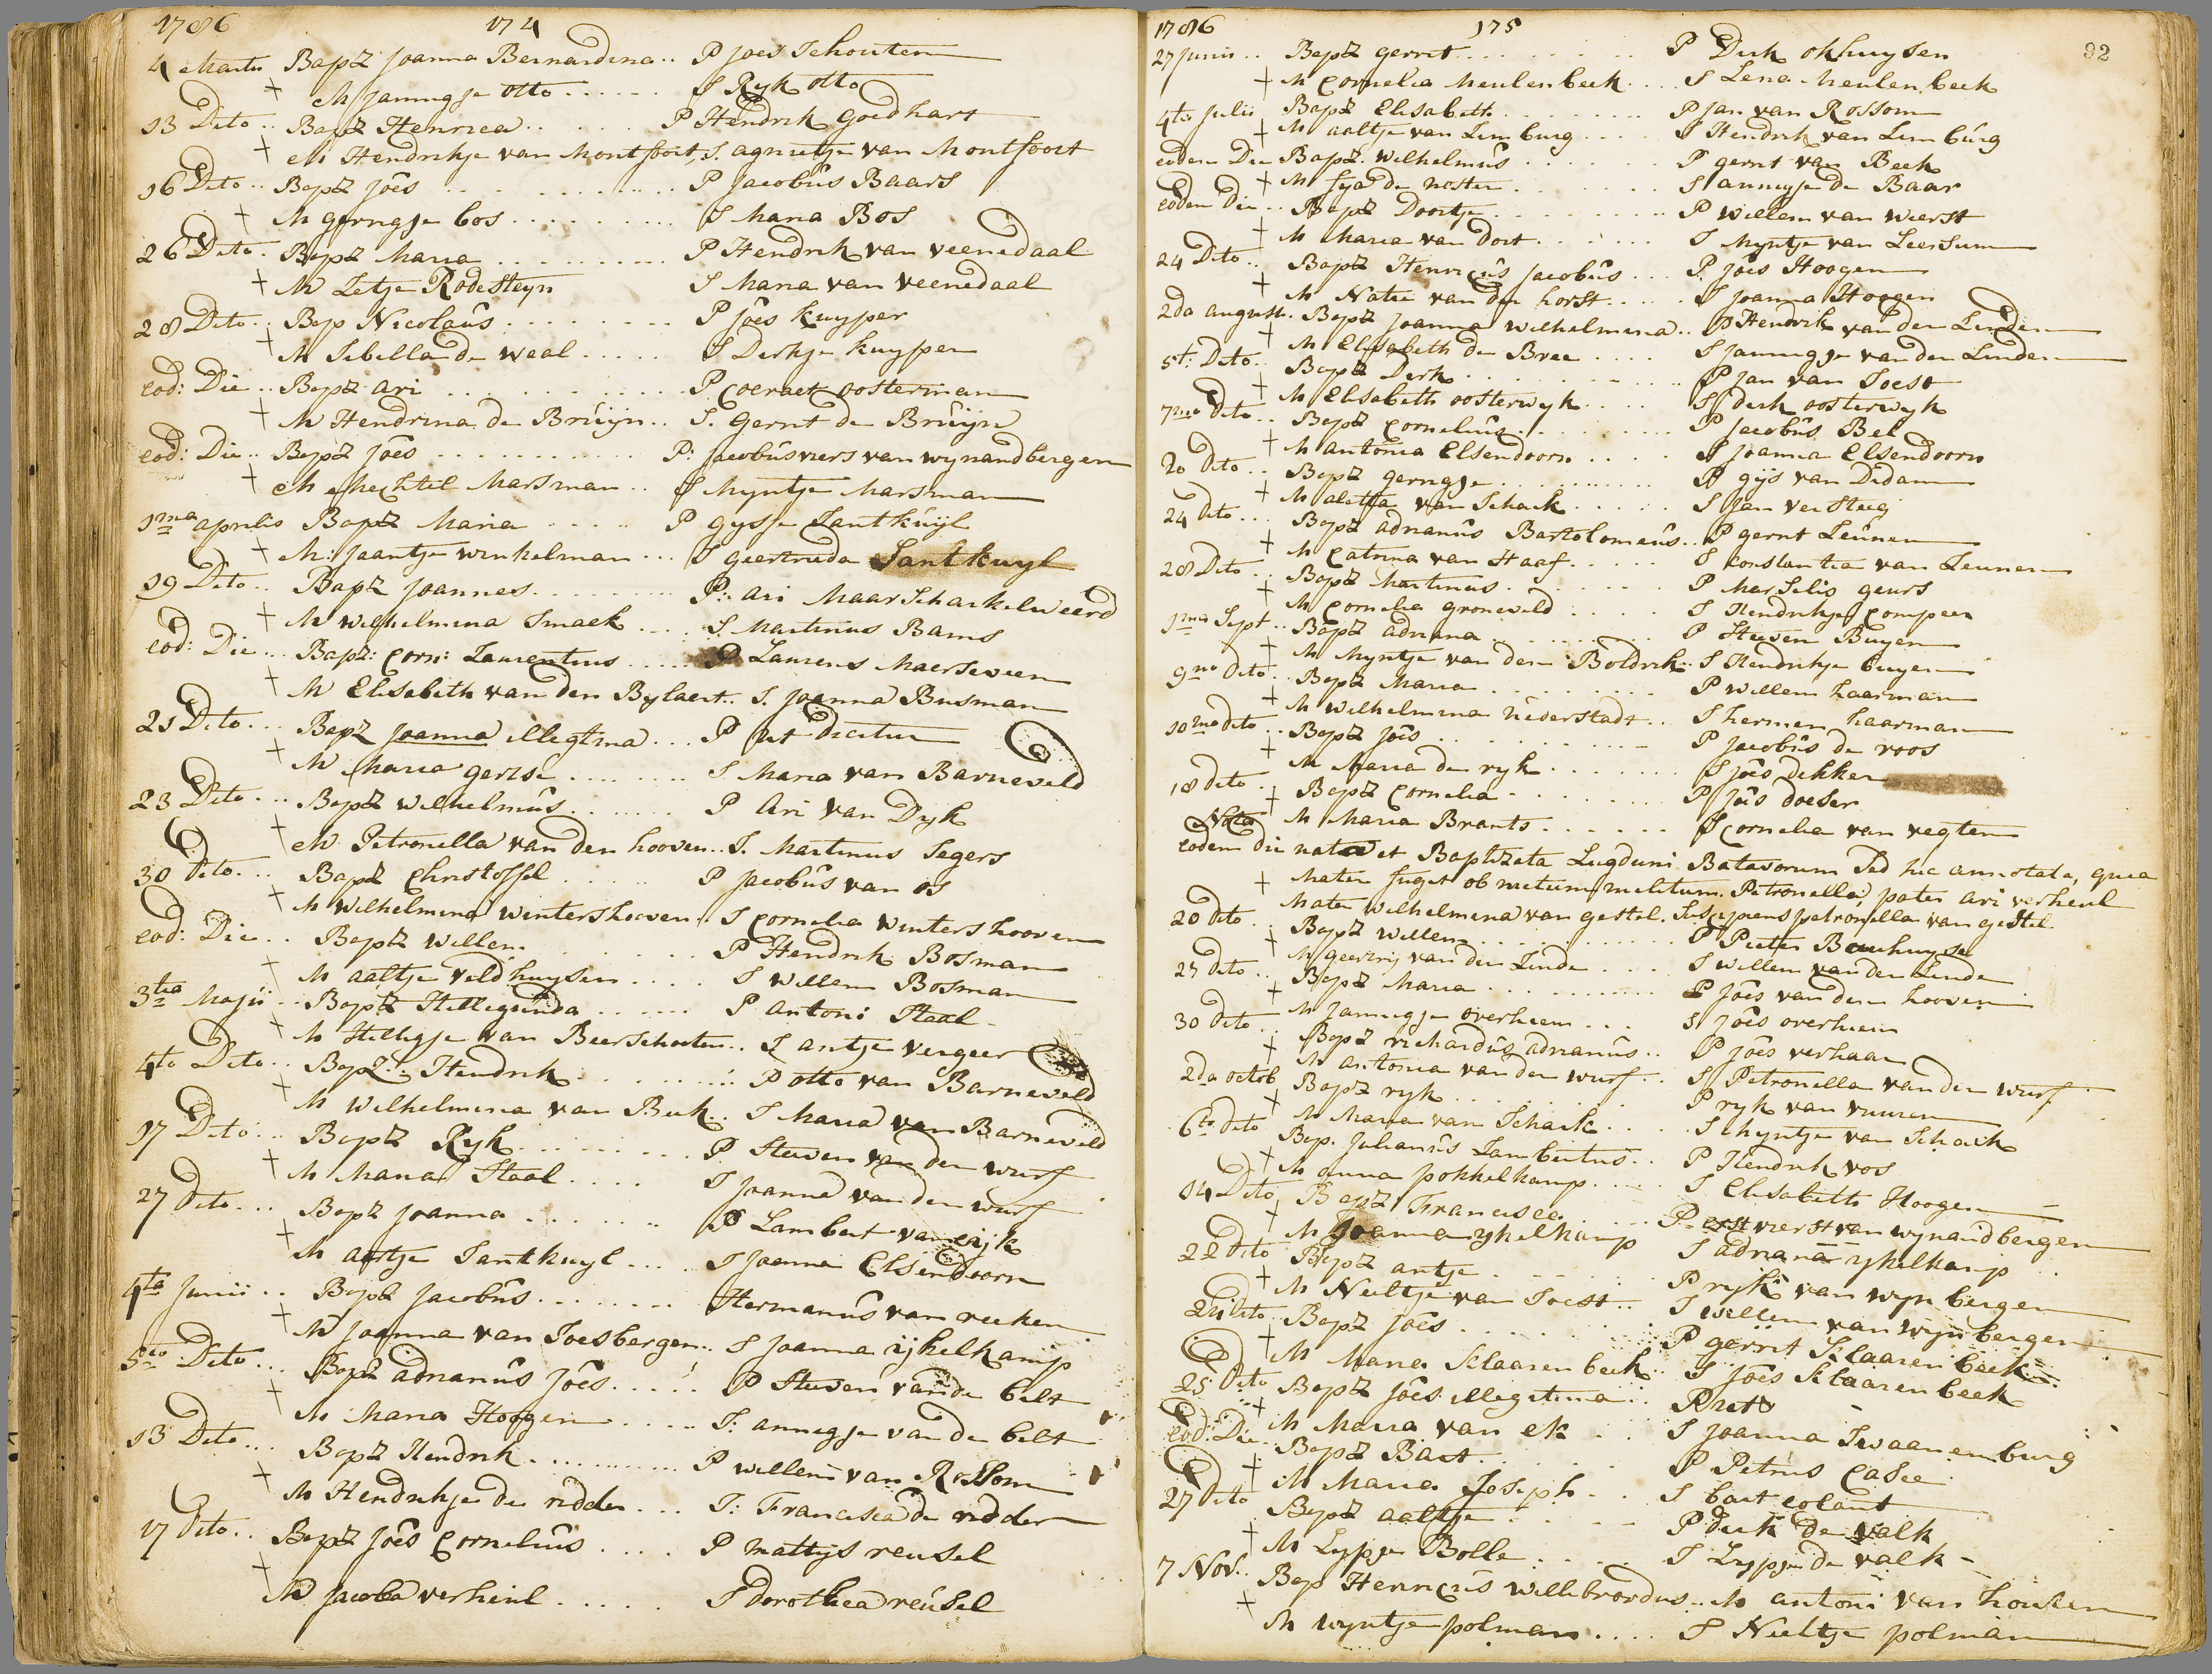 1786 174
4 Martii Bapz Joanna Bernardina .. P Joes Schouten
+ M Jannigje otto ...... S Ryk otto
13 Dito .. Bapz Henrica ...... P Hendrik Goedhart
+ M Hendrikje van Montfoort, S. agnietje van Montfoort
16 Dito .. Bapz Joês ............ P Jacobûs Baars
+ M gerrigje bos .......... S Maria Bos
26 Dito . Bapz Maria .......... P Hendrik van veenedaal
+ M Letje Rodesteyn S Maria van veenedaal
28 Dito .. Bap Nicolaûs ......... P Joês kuyper
+ M Sibilla de Waal ..... S Derkje kuyper
eod: Die .. Bapz Ari ............ P. Coeraet oosterman
+ M Hendrina de Brûijn .. S. Gerrit de Brûijn
eod: Die .. Bapz Joês ............ P: Jacobûs viers van wynandbergen
+ M Mechtel Marsman .. S Myntje Marsman
1ma aprilis Bapz Maria ..... P Gysje Santkûijl
+ M: Jaantje winkelman ... S geertruda Santkuyl
19 Dito .. Bapz Joannes .......... P: Ari Maarschalkelweerd
+ M Wilhelmina Smaek .... S. Martinus Bams
eod: Die ... Bapz: Corn: Laurentius ..... P Laurens Maerseveen
+ M Elisabeth van den Bylaert .. S. Joanna Busman
21 Dito ... Bapz Joanna illegtima ... P ut dicitur
+ M Maria gerise ........ S Maria van Barneveld
23 Dito ... Bapz Wilhelmûs ....... P Ari van Dyk
+ M Petronella van den hooven .. S. Martinus Segers
30 Dito ... Bapz Christoffel ..... P Jacobûs van os
+ M Wilhelmina Wintershooven .. S Cornelia Wintershooven
eod: Die .. Bapz Willem ........ P Hendrik Bosman
+ M aaltje veldhuysen .... S Willem Bosman
3tia Majii .. Bapz Hillegûnda ..... P Antoni Staal
+ M Hillegje van Beerschoten .. S antje vergeer
4to Dito .. Bapz: Hendrik ........ P otto van Barneveld
+ M Wilhelmina van Beek .. S Maria van Barneveld
17 Dito ... Bapz Ryk .......... P Steeven van den wurf
+ M Maria Staal .... S Joanna van den wurf
27 Dito ... Bapz Joanna ........ P Lambert van eijk
+ M aartje Santkuyl .... S Joanna Elsendoorn
4ta Junii .. Bapz Jacobûs ........ Hermanûs van reeken
+ M Joanna van Soesbergen .. S Joanna ijkelkamp
5to Dito ... Bapz adrianûs Joês ..... P Steeven van de bilt
+ M Maria Hoogen .... S: annigje van de bilt
13 Dito ... Bapz Hendrik ........... P willem van Rossom
+ M Hendrikje de ridder ... S: Francisca de ridder
17 Dito .. Bapz Joês Cornelius .... P Mattijs reusel
+ M Jacoba verheul ..... S dorothea reûsel
1786 175 92
27 Junii .. Bapz Gerrit ......... P Derk okhuysen
+ M Cornelia Meulenbeek .... S Lena Meulenbeek
4to Julii Bapz Elisabeth ........ P Jan van Rossom
+ M aaltje van Limburg .... S Hendrik van Limbûrg
eodem Die Bapz. Wilhelmûs ...... P gerrit van Beek
+ M Syda de noster ...... S annigje de Baar
eodem Die .. Bapz Doortje ......... P Willem van Wierst
+ M Maria van dort ...... S Myntje van Leersum
24 Dito .. Bapz Henricûs Jacobûs ... P. Joês Hoogen
+ M Natie van der horst .... S Joanna Hoogen
2da august. Bapz Joanna Wilhelmina .. P Hendrik van der Linden
+ M Elisabeth de Bree .... S Jannigje van der Linden
5ti Dito .. Bapz Derk ........... P Jan van Soest
+ M Elisabeth oosterwyk .... S derk oosterwyk
7mo dito .. Bapz Cornelius ........ P Jacobûs Bel
+ M antonia Elsendoorn .... S Joanna Elsendoorn
20 dito .. Bapz Gerrigje .......... P gijs van Didam
+ M aletta van Schaik ..... S Jan Versteeg
24 dito ... Bapz adrianûs Bartolomeûs .. P gerrit Leûnen
+ M Catrina van Haaf ..... S constantia van Leunen
28 Dito .. Bapz Martinus ....... P Marselis geurs
+ M Cornelia groneveld .... S Hendrikje Compeer
1mo Sept .. Bapz adriana .......... P Steeven Buyen
+ M Myntje van den Boldrik .. S Hendrikje buyen
9no dito .. Bapz Maria ......... P Willem haarman
+ M Wilhelmina niederstadt .. S hermen haarman
10mo dito .. Bapz Joês ........... P Jacobûs de roos
+ M Maria de ryk ....... S Joês dekker
18 dito .. Bapz Cornelia ........ P Joês doeser
+ M Maria Brants ...... S Cornelia van vegten
Nota eodem die nata et Baptizata Lugduni Batavorum sed hic annotata, quia
+ Mater fugit ob metum militum. Petronella, pater Ari verheul
Mater Wilhelmina van gestel. Suscipiens petronella van gestel
20 dito .. Bapz Willem .......... P Pieter Bauhuyse
+ M geertruij van der Linde .... S willem van der Linde
27 dito .. Bapz Maria ......... P Joês van den hooven
+ M Jannigje overheem ... S Joês overheem
30 dito .. Bapz richardûs adrianûs .. P Joês verhaar
+ M antonia van der wurf .. S Petronella van der wurf
2da octob Bapz ryk .......... P ryk van vuuren
+ M Maria van Schaik .... S Myntje van Schaik
6to dito Bap. Julianûs Lambertus .. P Hendrik vos
+ M anna pokkelkamp .... S Elisabeth Hoogen
14 Dito Bapz Francisca .... P. viers van wynandbergen
+ M Joanna ykelkamp S adriana ykelkamp
22 Dito Bapz antje ....... P ryk van wyn bergen
+ M Neeltje van Soest .. S willem van wyn bergen
24 dito Bapz Joês ....... P gerrit Klaarenbeek
+ M Maria Klaarenbeek .. S Joês Klaarenbeek
25 Dito Bapz Joês illegitima .. P
+ M Maria van ek .. S Joanna Swaanenburg
eod: Die Bapz Bart ...... P Petrus Casee
+ M Maria Joseph .. S bart colant
27 dito Bapz aaltje ..... P derk de valk
+ M Lypje Bolle ..... S Lypje de valk
7 Nov. .. Bap Henricûs Willebrordus .. M antoni van houten
+ M wyntje polman .... S Neeltje polman